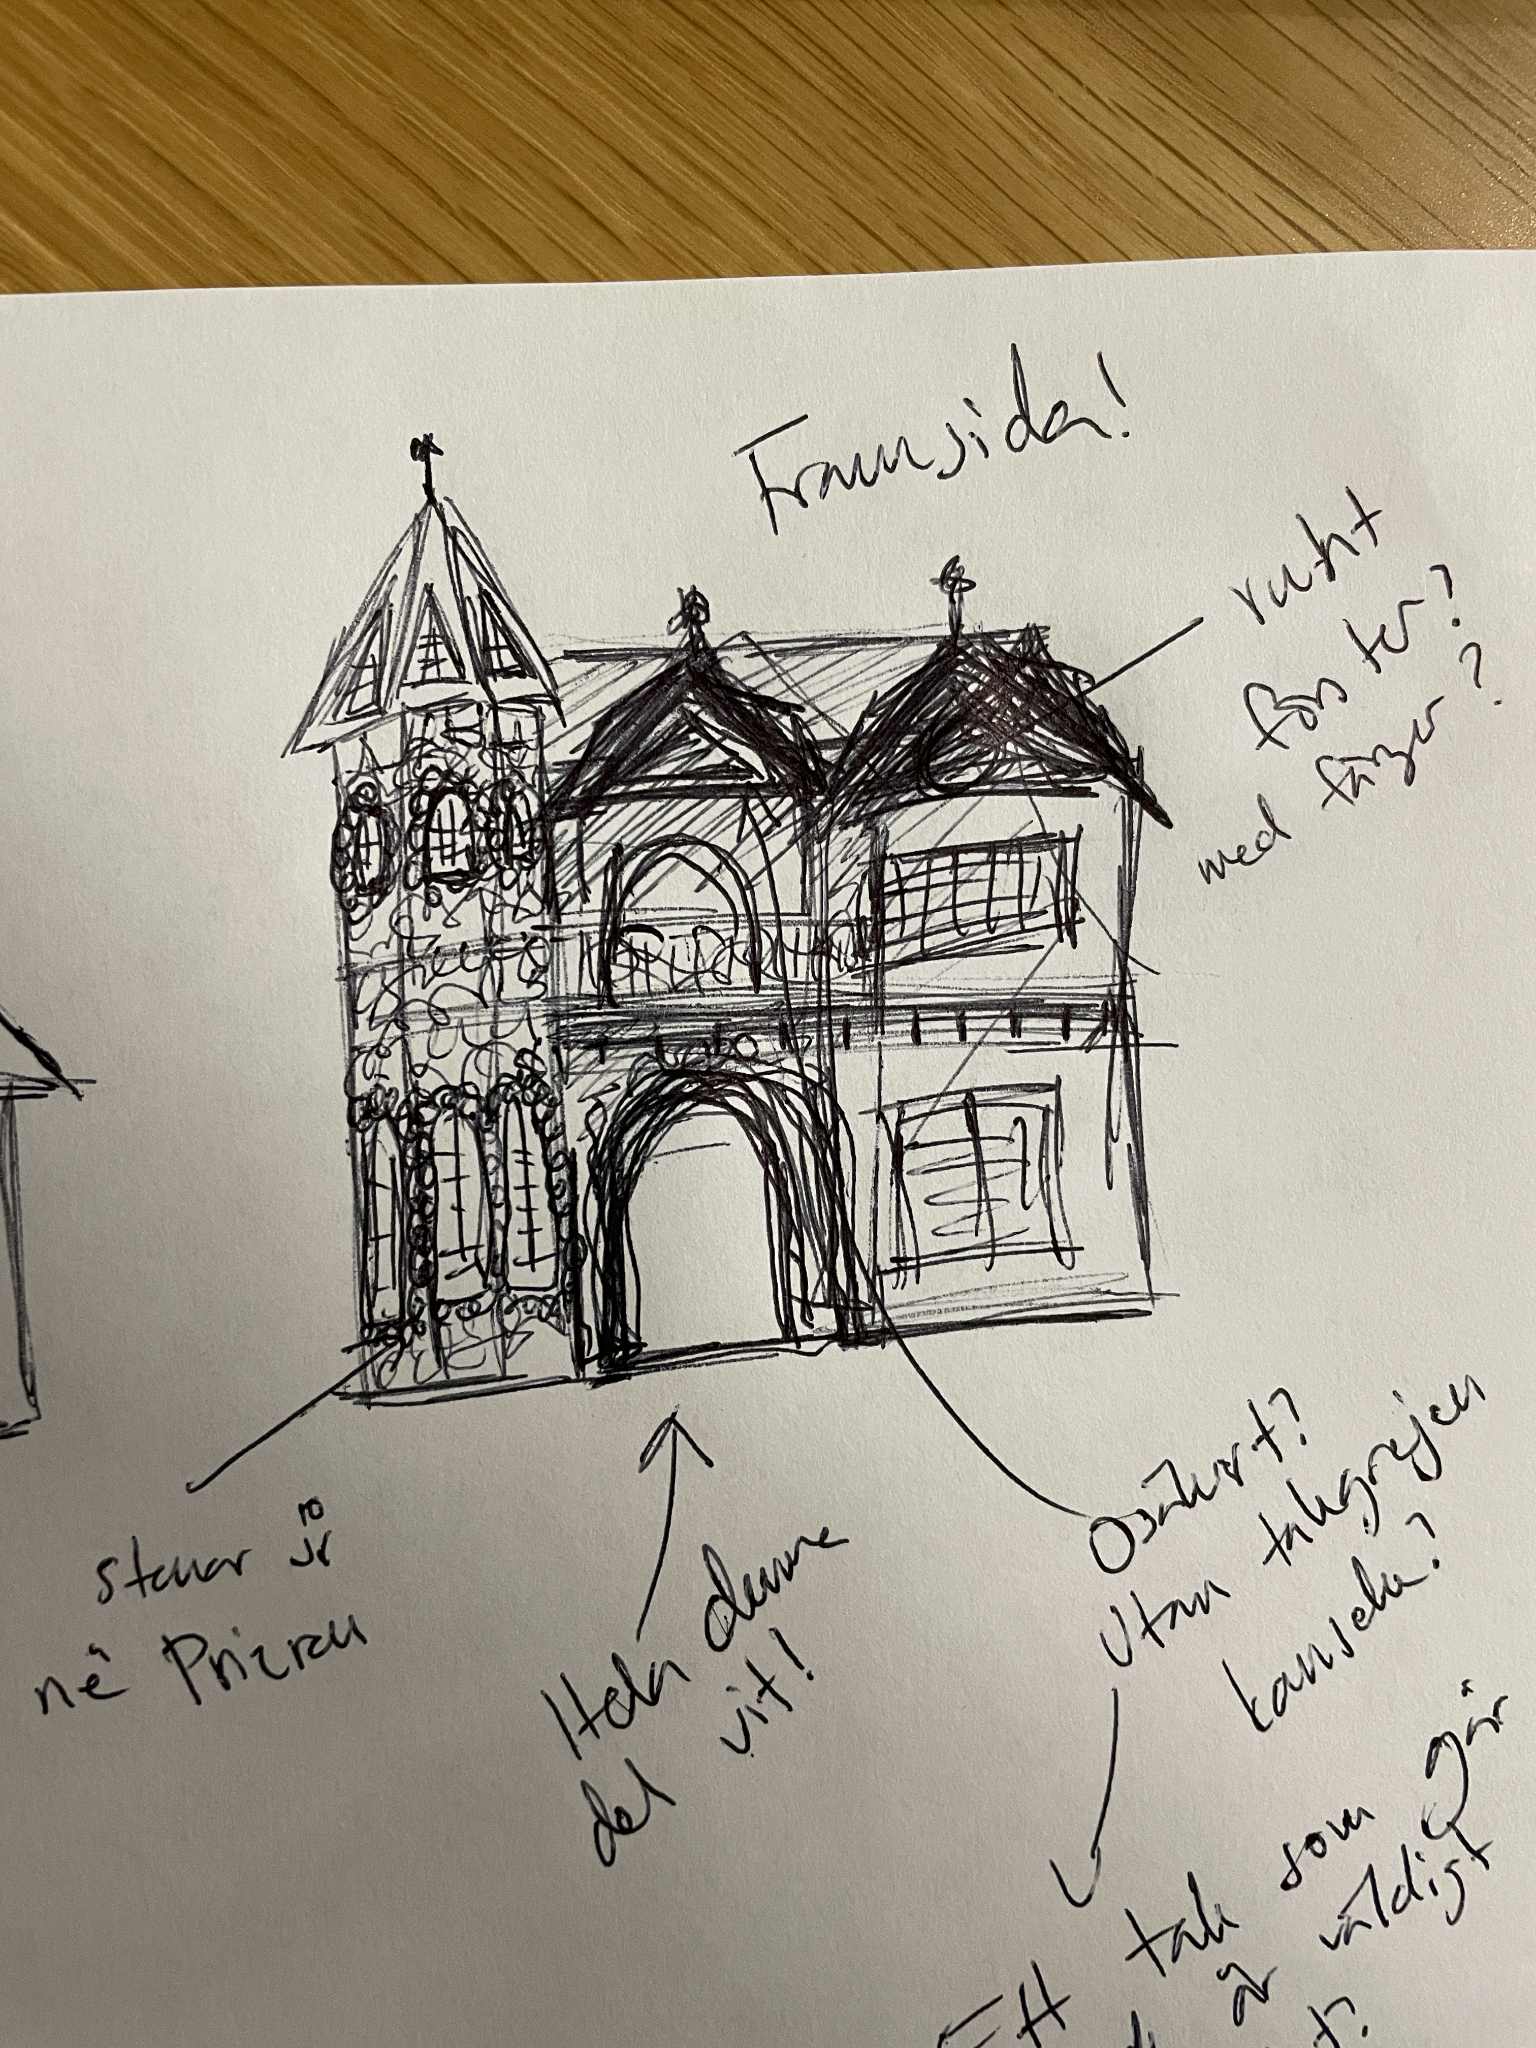 Framsida!
runt
fönster?
med färger?
stenar
në Prizren
Hela denna
del vit!
Osäkert?
Utan takgrejen
kanske?
Ett tak som går
är väldigt